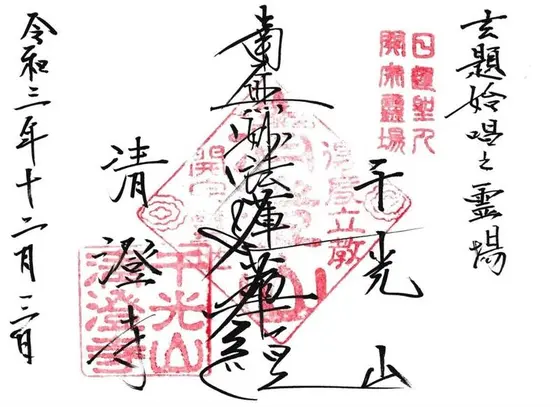 玄題始唱之霊場
日蓮聖人
開宗霊場
千光山
南無妙法蓮華経
清澄寺
千光山
清澄寺
令和三年十二月三日